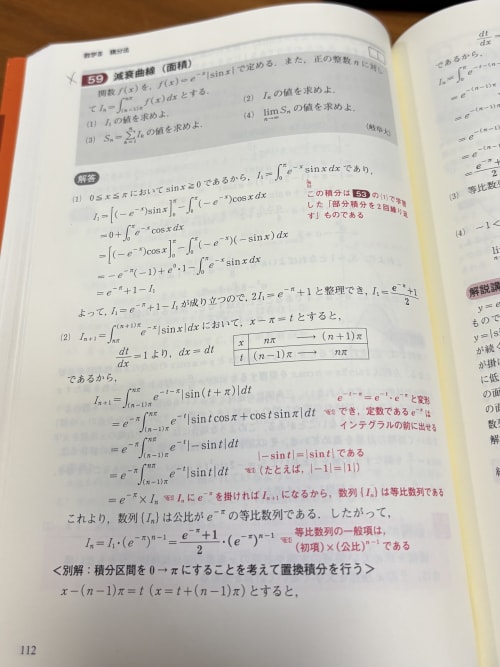 数学Ⅲ 積分法
59 減衰曲線(面積)
関数 f(x) を, f(x)=e^{-x}|sin x| で定める. また, 正の整数 n に対し
て I_n=∫_{(n-1)π}^{nπ} f(x)dx とする.
(1) I_1 の値を求めよ. (2) I_n の値を求めよ.
(3) S_n=Σ_{k=1}^{n} I_k の値を求めよ. (4) lim_{n→∞} S_n の値を求めよ.
(岐阜大)
解答
(1) 0≦x≦π において sin x≧0 であるから, I_1=∫_0^π e^{-x} sin x dx であり,
I_1=[(-e^{-x})sin x]_0^π-∫_0^π(-e^{-x})cos x dx
=0+∫_0^π e^{-x}cos x dx
=[(-e^{-x})cos x]_0^π-∫_0^π(-e^{-x})(-sin x)dx
=-e^{-π}(-1)+e^0・1-∫_0^π e^{-x}sin x dx
=e^{-π}+1-I_1
この積分は 53 の(1)で学習
した「部分積分を2回繰り返
す」ものである
よって, I_1=e^{-π}+1-I_1 が成り立つので, 2I_1=e^{-π}+1 と整理でき, I_1=(e^{-π}+1)/2
(2) I_{n+1}=∫_{nπ}^{(n+1)π} e^{-x}|sin x|dx において, x-π=t とすると,
dt/dx=1 より, dx=dt
x nπ ⟶ (n+1)π
t (n-1)π ⟶ nπ
であるから,
I_{n+1}=∫_{(n-1)π}^{nπ} e^{-t-π}|sin(t+π)|dt
=e^{-π}∫_{(n-1)π}^{nπ} e^{-t}|sin t cos π+cos t sin π|dt
=e^{-π}∫_{(n-1)π}^{nπ} e^{-t}|-sin t|dt
=e^{-π}∫_{(n-1)π}^{nπ} e^{-t}|sin t|dt
=e^{-π}×I_n
e^{-t-π}=e^{-t}・e^{-π} と変形
でき, 定数である e^{-π} は
インテグラルの前に出せる
|-sin t|=|sin t| である
(たとえば, |-1|=|1|)
I_n に e^{-π} を掛ければ I_{n+1} になるから, 数列{I_n}は等比数列である
これより, 数列{I_n}は公比が e^{-π} の等比数列である. したがって,
I_n=I_1・(e^{-π})^{n-1}=(e^{-π}+1)/2・(e^{-π})^{n-1}
等比数列の一般項は,
(初項)×(公比)^{n-1} である
<別解:積分区間を 0→π にすることを考えて置換積分を行う>
x-(n-1)π=t (x=t+(n-1)π) とすると,
112